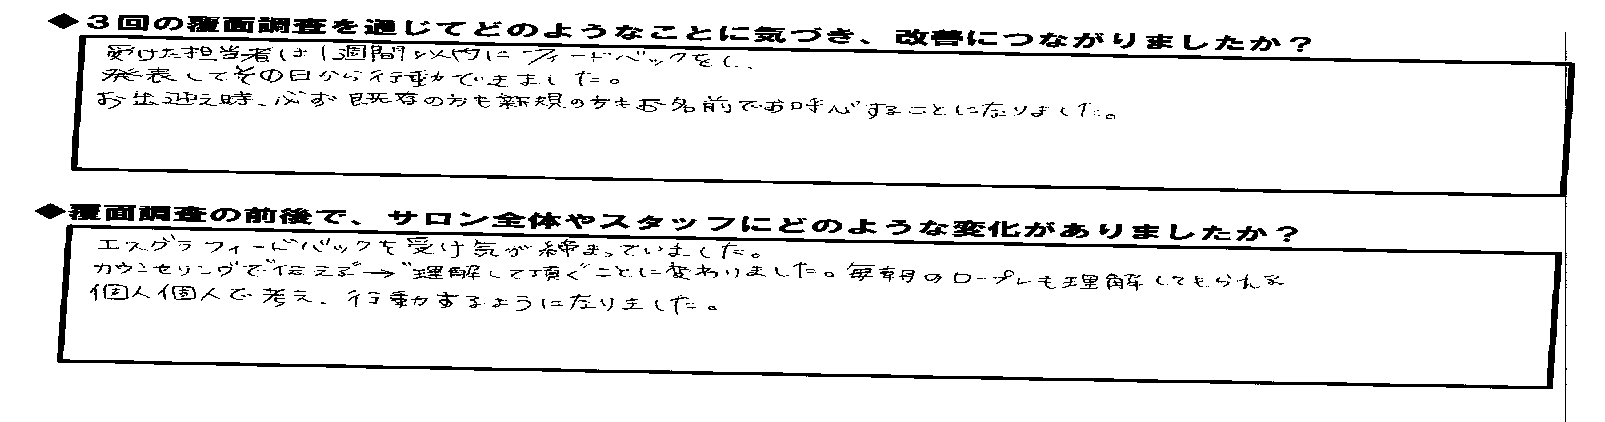 ◆３回の覆面調査を通じてどのようなことに気づき、改善につながりましたか？
受けた担当者は1週間以内にフィードバックをし、
発表してその日から行動できました。
お出迎え時、必ず既存の方も新規の方もお名前でお呼びすることになりました。
◆覆面調査の前後で、サロン全体やスタッフにどのような変化がありましたか？
エスグラフィードバックを受け気が締まっていました。
カウンセリングで伝える→"理解して頂く"ことに変わりました。毎朝のロープレも理解してもらえる
個人個人で考え、行動するようになりました。